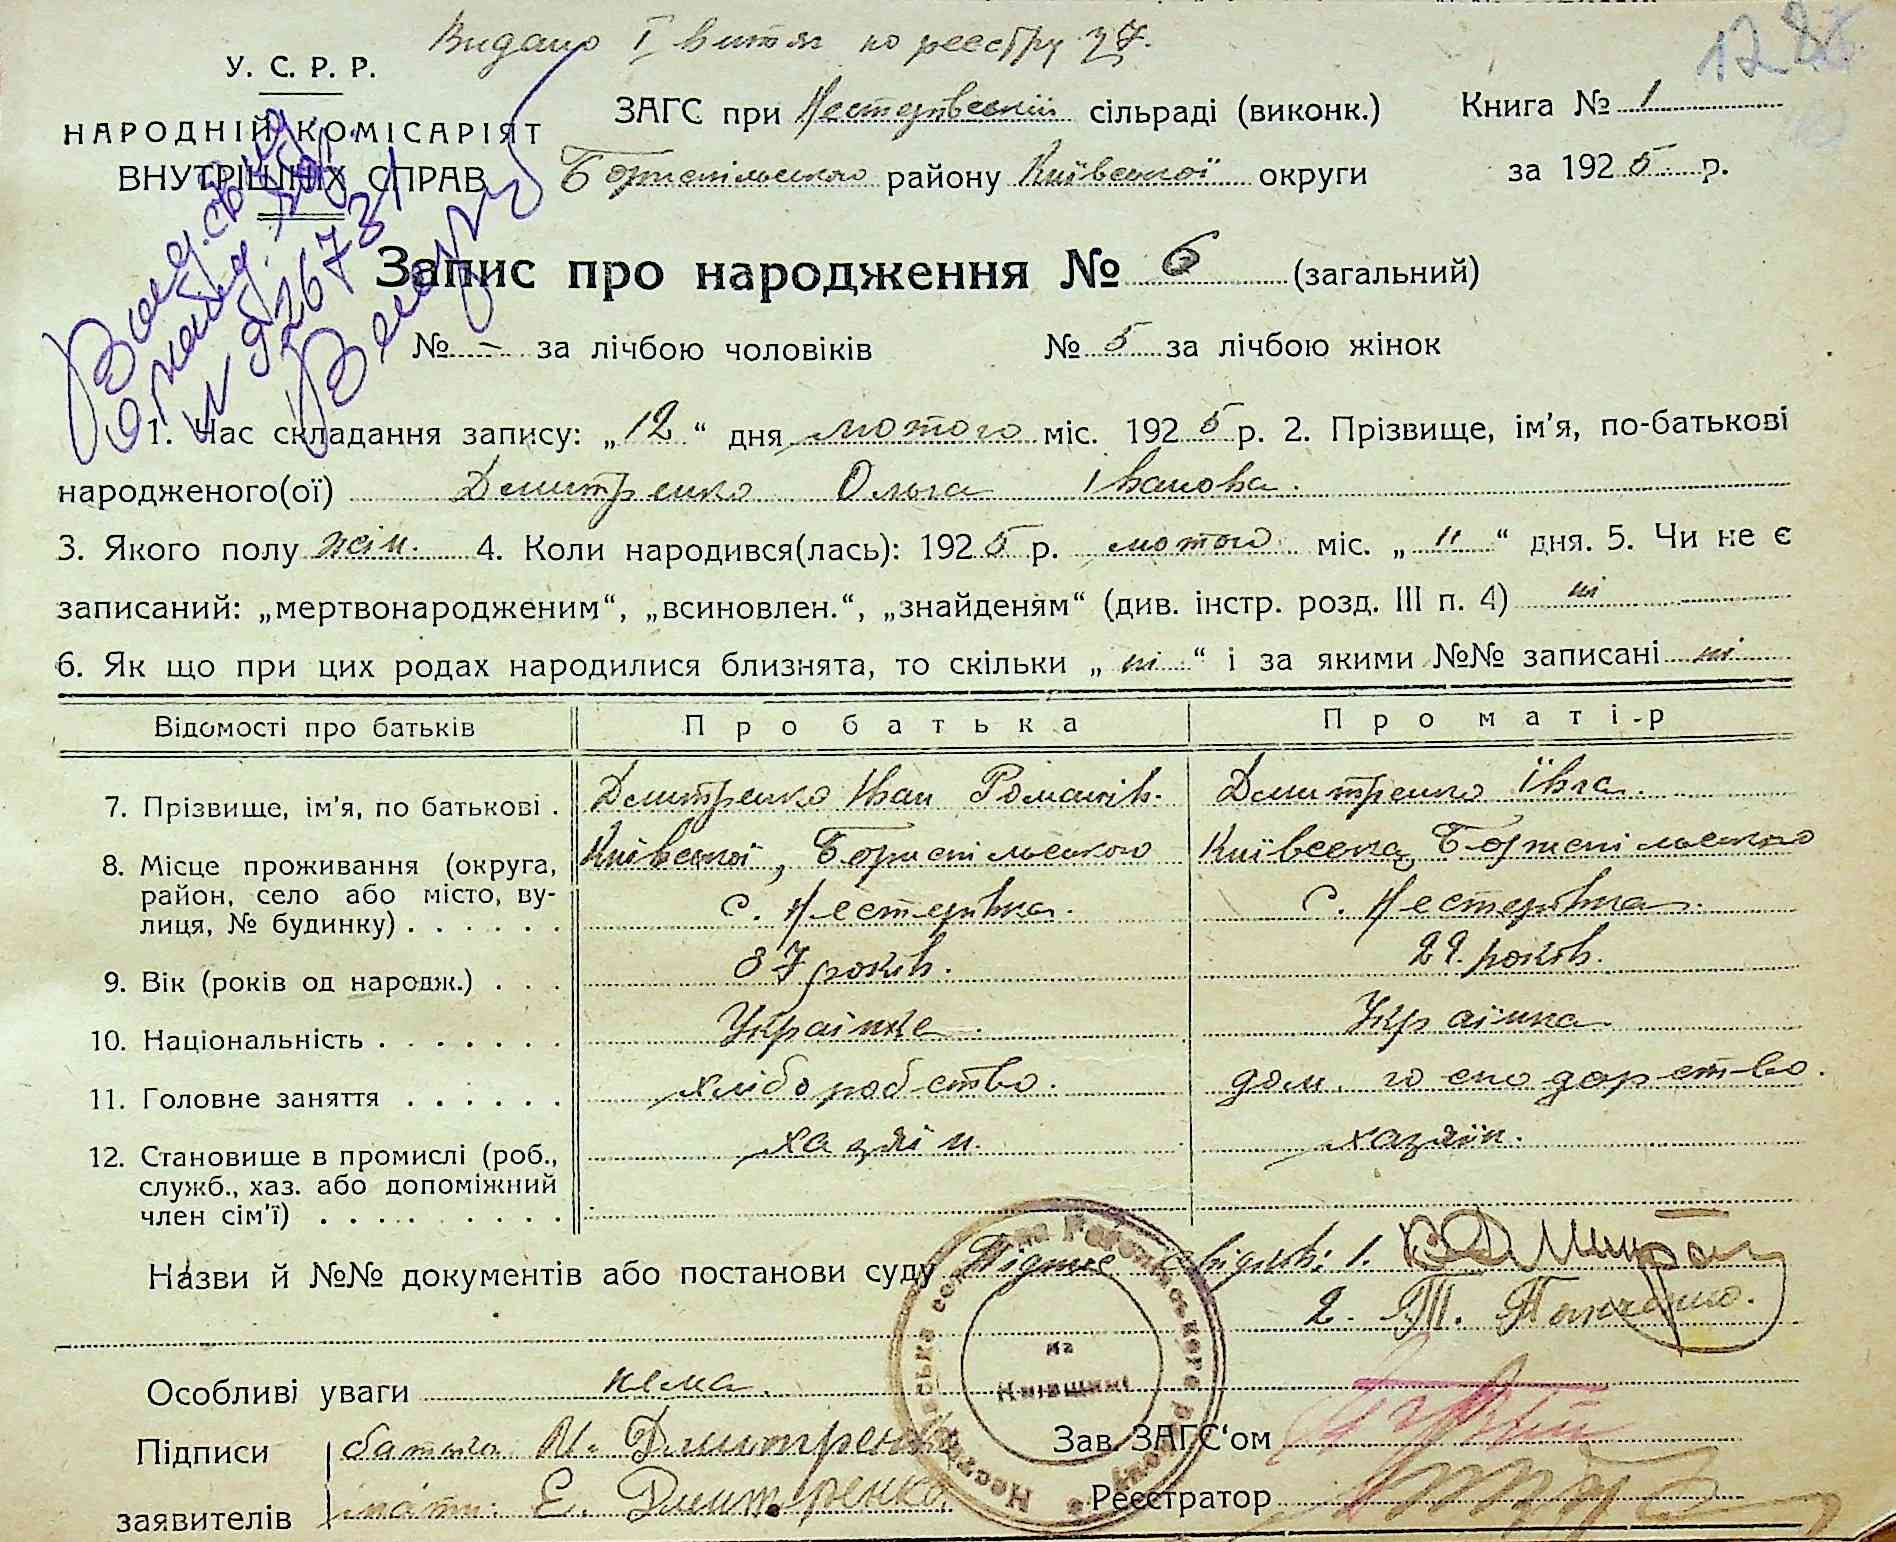 Видано I витяг по реєстру 27.
У. С. Р. Р.
НАРОДНІЙ КОМІСАРІЯТ
ВНУТРІШНІХ СПРАВ
ЗАГС при Нестерівській сільраді (виконк.) Книга № 1
Бориспільського району Київської округи за 1925 р.
Запис про народження № 6 (загальний)
№ - за лічбою чоловіків № 5 за лічбою жінок
1. Час складання запису: „12“ дня лютого міс. 1925 р. 2. Прізвище, ім'я, по-батькові
народженого(ої) Дмитренко Ольга Іванова.
3. Якого полу жін. 4. Коли народився(лась): 1925 р. лютого міс. „11“ дня. 5. Чи не є
записаний: „мертвонародженим“, „всиновлен.“, „знайденям“ (див. інстр. розд. III п. 4) ні
6. Як що при цих родах народилися близнята, то скільки „ні“ і за якими №№ записані ні
Відомості про батьків Про батька Про матір
7. Прізвище, ім'я, по батькові . Дмитренко Іван Романів. Дмитренко Ївга.
8. Місце проживання (округа, Київської, Бориспільського Київська, Бориспільського
район, село або місто, ву-
лиця, № будинку) . . . . . . с. Нестерівка. с. Нестерівка.
9. Вік (років од народж.) . . . 37 років. 22. років.
10. Національність . . . . . . . Українка. Українка
11. Головне заняття . . . . . . хліборобство. дом. господарство.
12. Становище в промислі (роб., хазяїн. хазяїн.
служб., хаз. або допоміжний
член сім'ї) . . . . . . . . .
Назви й №№ документів або постанови суду Підпис свідків: 1.
2. Т.
Особливі уваги нема.
Підписи батька И. Дмитренко Зав. ЗАГС'ом
заявителів мати. Е. Дмитренко Реєстратор
на
Київщині